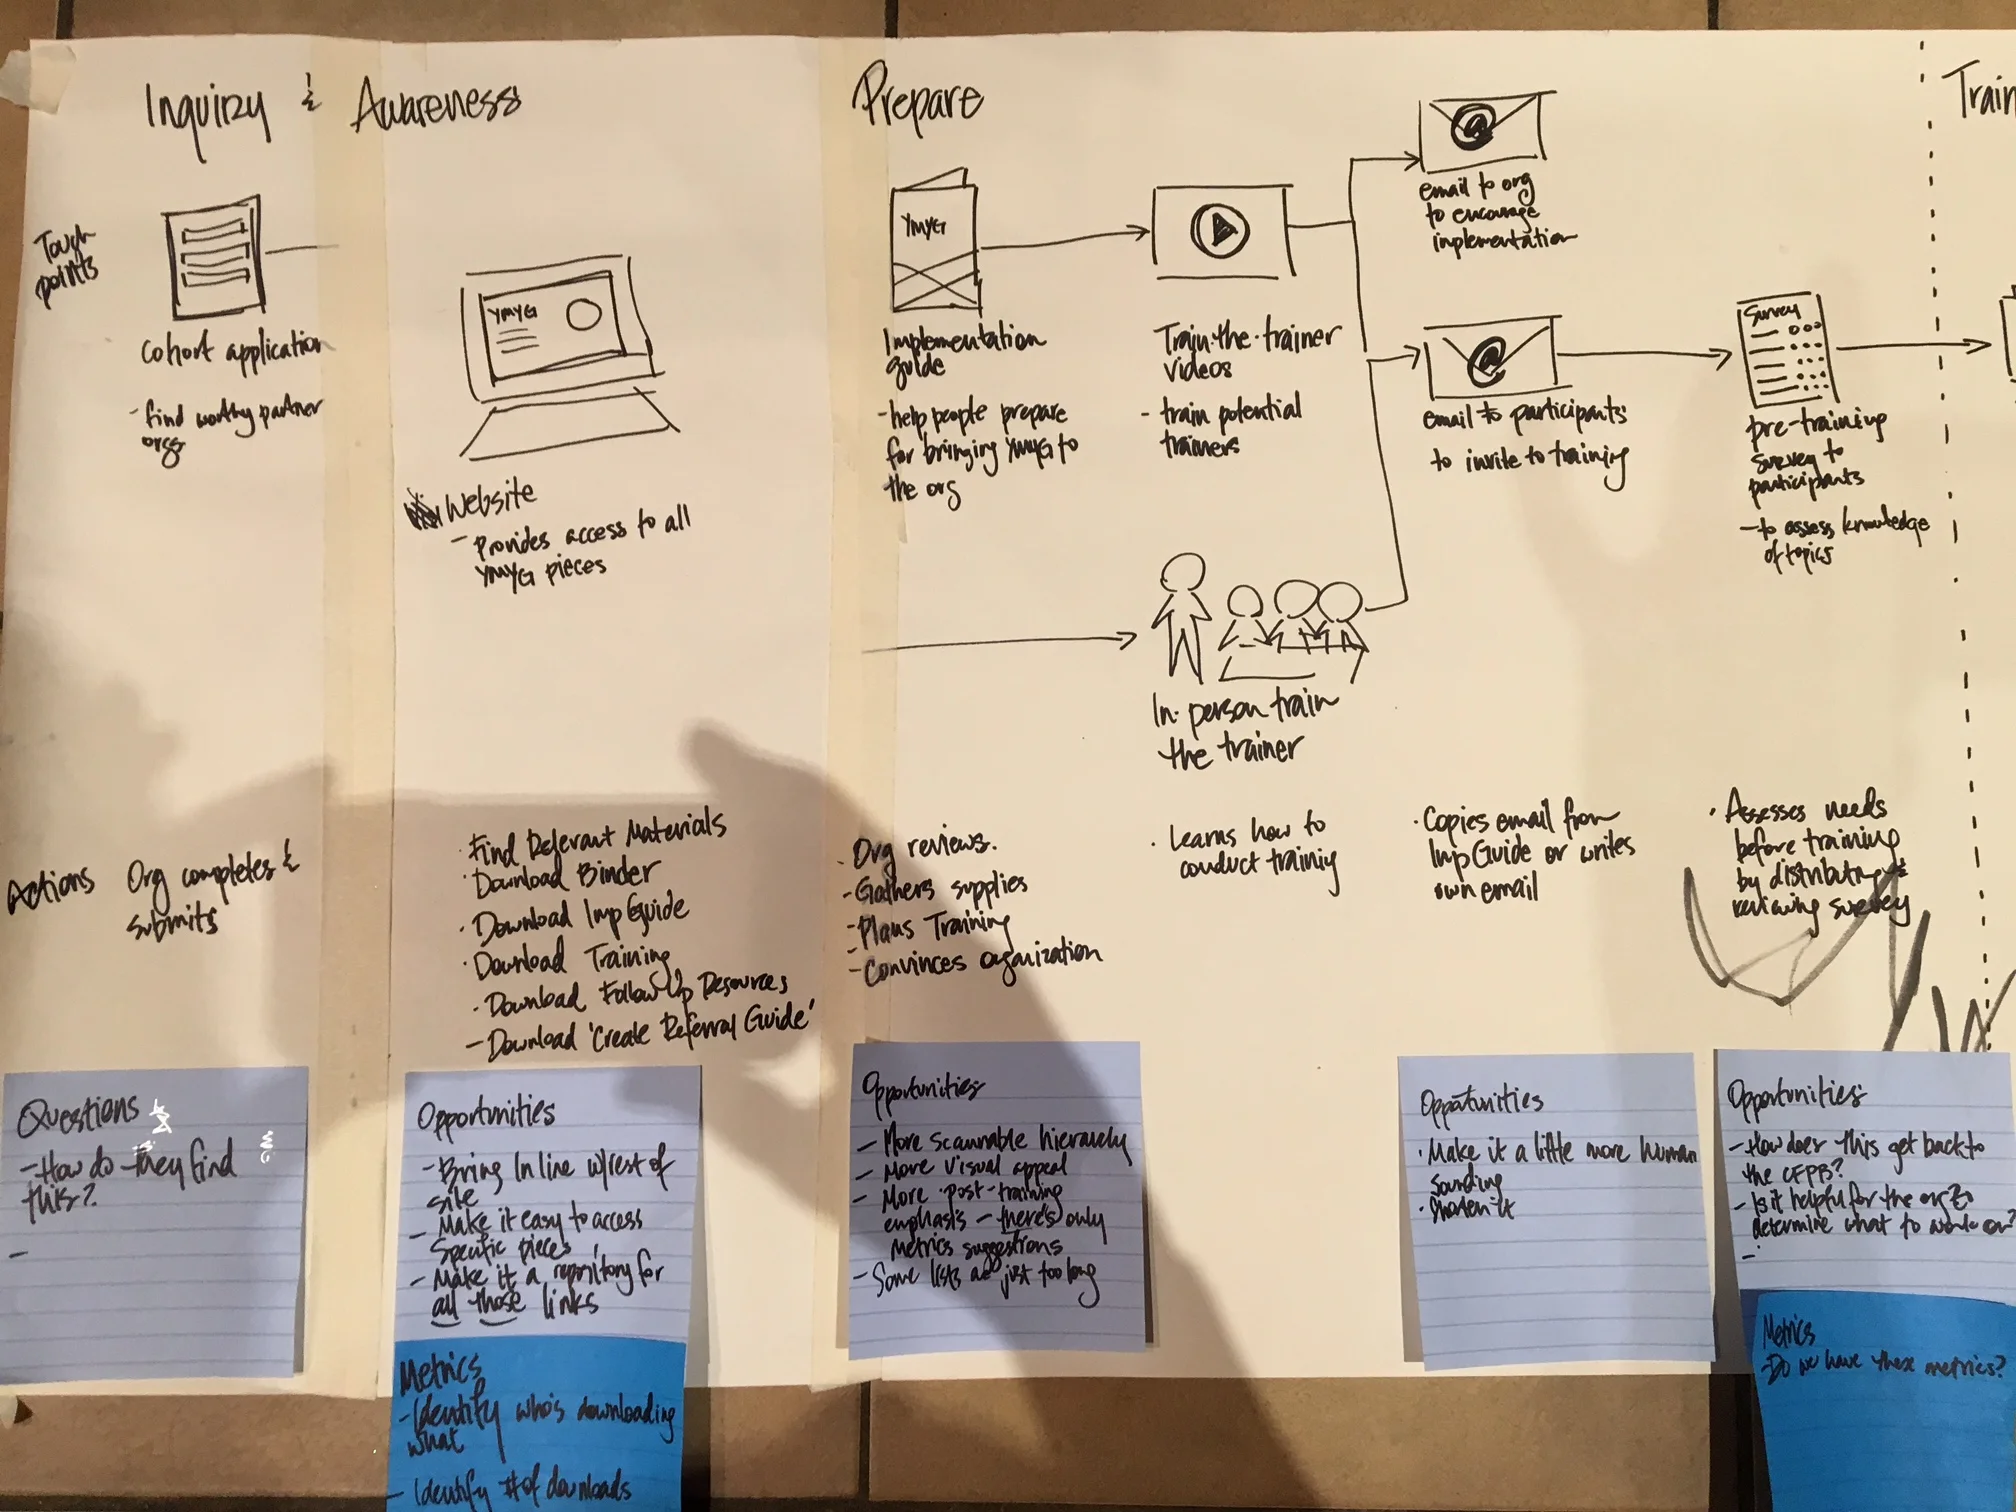 Inquiry & Awareness
Prepare
Train
Touch
points
Cohort application
- find worthy partner
orgs
YMYG
Website
- Provides access to all
YMYG pieces
YMYG
Implementation
guide
- help people prepare
for bringing YMYG to
the org
Train-the-trainer
videos
- train potential
trainers
@
email to org
to encourage
implementation
@
email to participants
to invite to training
Survey
pre-training
survey to
participants
- to assess knowledge
of topics
In-person train
the trainer
Actions
Org completes &
submits
· Find Relevant Materials
· Download Binder
· Download Imp Guide
· Download Training
· Download Follow Up Resources
- Download 'Create Referral Guide'
· Org reviews.
- Gathers supplies
- Plans Training
- Convinces organization
· Learns how to
conduct training
· Copies email from
Imp Guide or writes
own email
· Assesses needs
before training
by distributing &
reviewing survey
Questions
- How do they find
this?
-
Opportunities
- Bring in line w/rest of
site
- Make it easy to access
specific pieces
- Make it a repository for
all those links
Metrics
- Identify who's downloading
what
- Identify # of downloads
Opportunities
- More scannable hierarchy
- More visual appeal
- More post-training
emphasis - there's only
metrics suggestions
- Some lists are just too long
Opportunities
· Make it a little more human
sounding
· Shorten it
Opportunities
- How does this get back to
the CFPB?
- Is it helpful for the org to
determine what to work on?
-
Metrics
- Do we have these metrics?